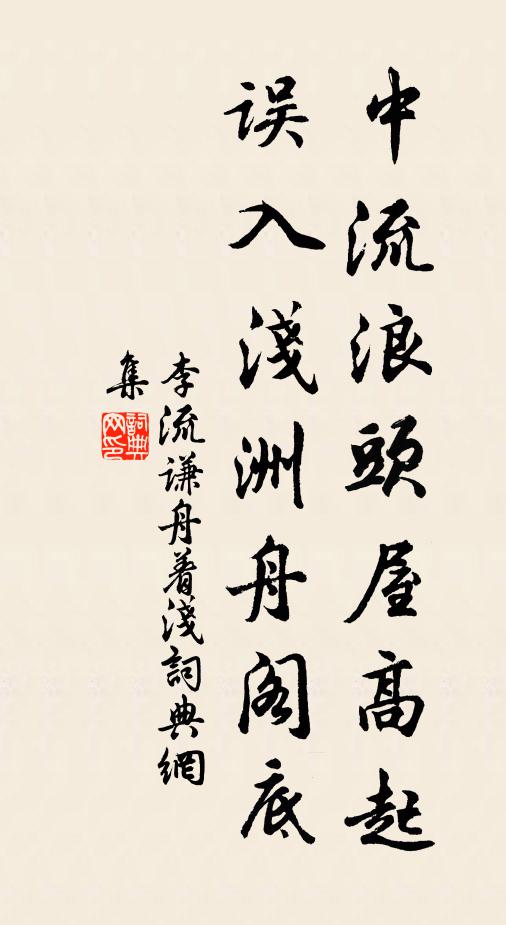 中流浪頭屋高起
误入淺洲舟阁底
李流谦舟着淺詞典網
集
詞典
网印